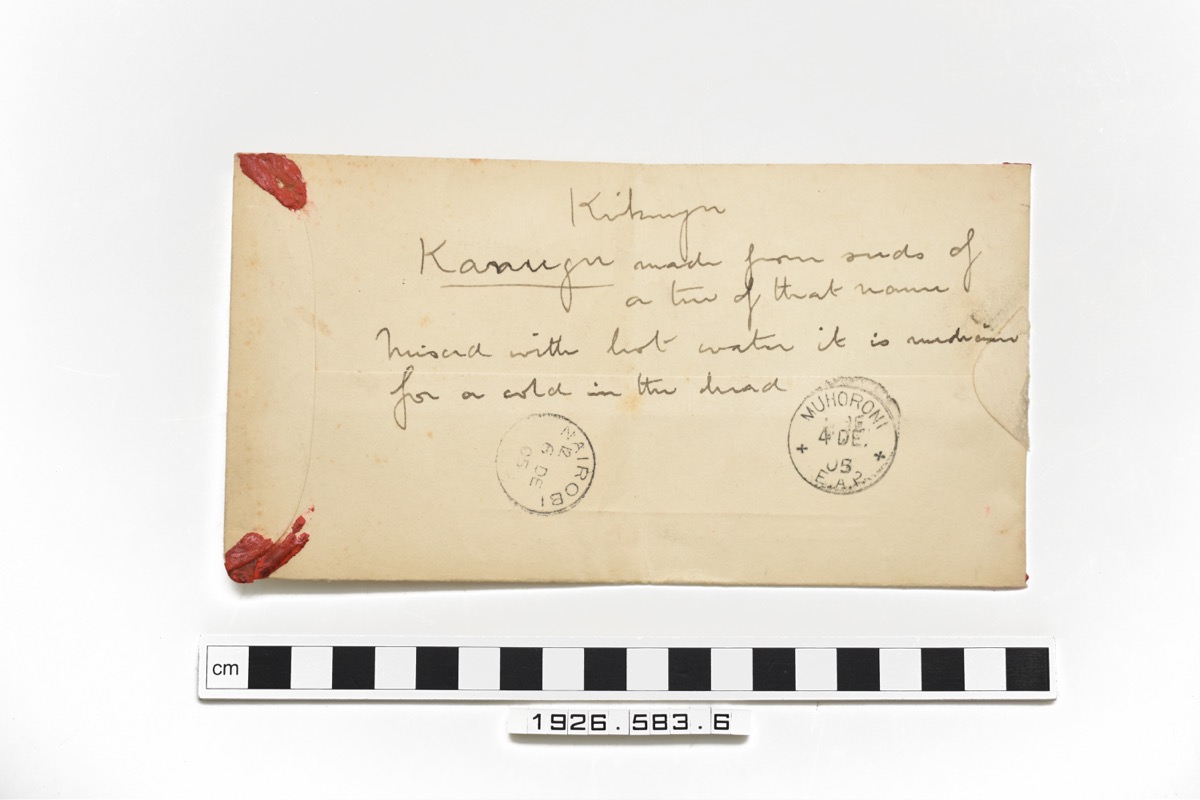 Kikuyu
Kanugu made from seeds of
a tree of that name
Mixed with hot water it is medicine
for a cold in the head
NAIROBI
12
6 DE
05
MUHORONI
4 DE.
05
E.A.P.
cm
1926.583.6